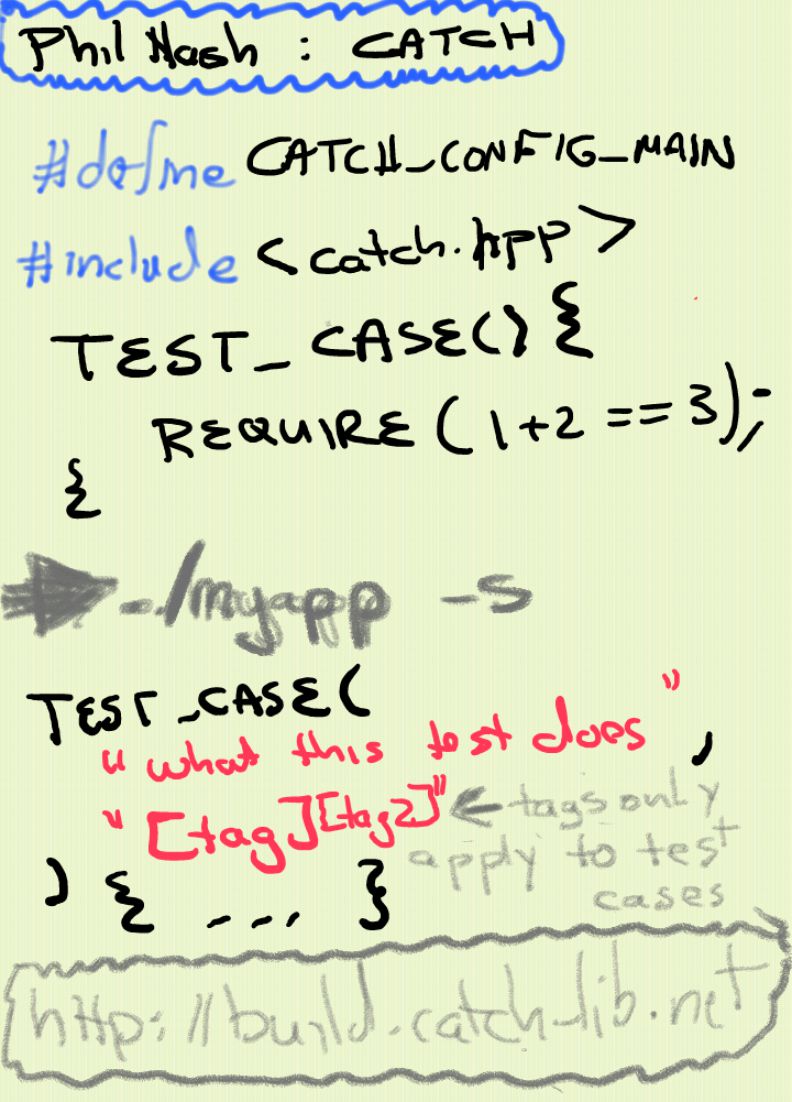 Phil Nash : CATCH
#define CATCH_CONFIG_MAIN
#include <catch.hpp>
TEST_CASE() {
REQUIRE(1+2 == 3);
{
./myapp -s
TEST_CASE(
"what this test does",
"[tag][tag2]" ← tags only
apply to test
cases
) { ... }
http://build.catch-lib.net